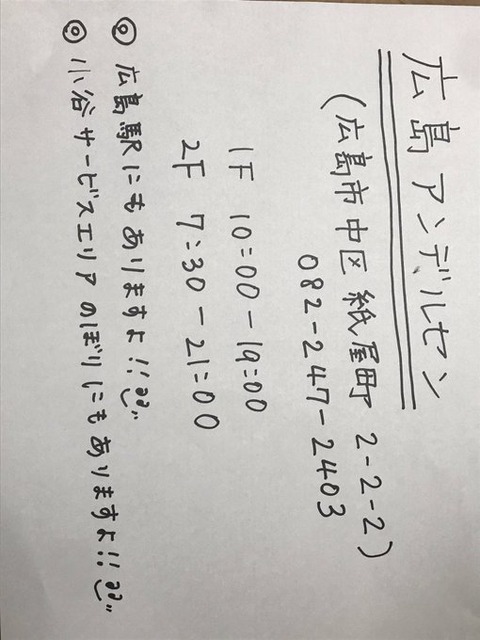 広島アンデルセン
(広島市中区紙屋町 2-2-2)
082-247-2403
1F 10:00-19:00
2F 7:30-21:00
◎ 広島駅にもありますよ!!
◎ 小谷サービスエリアのぼりにもありますよ!!